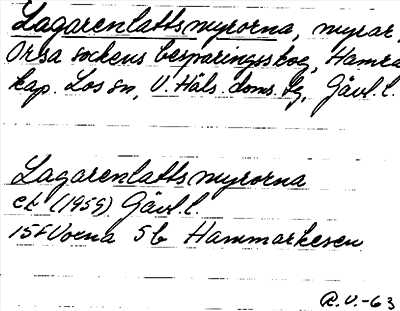 Lagarenlattsmyrorna, myrar,
Orsa sockens besparingsskog, Hamra
kap. Los sn, V. Häls. doms. bg, Gävl. l.
Lagarenlattsmyrorna
ek (1959) Gävl. l.
15F Voxna 5b Hammarkesen
R.V.-63